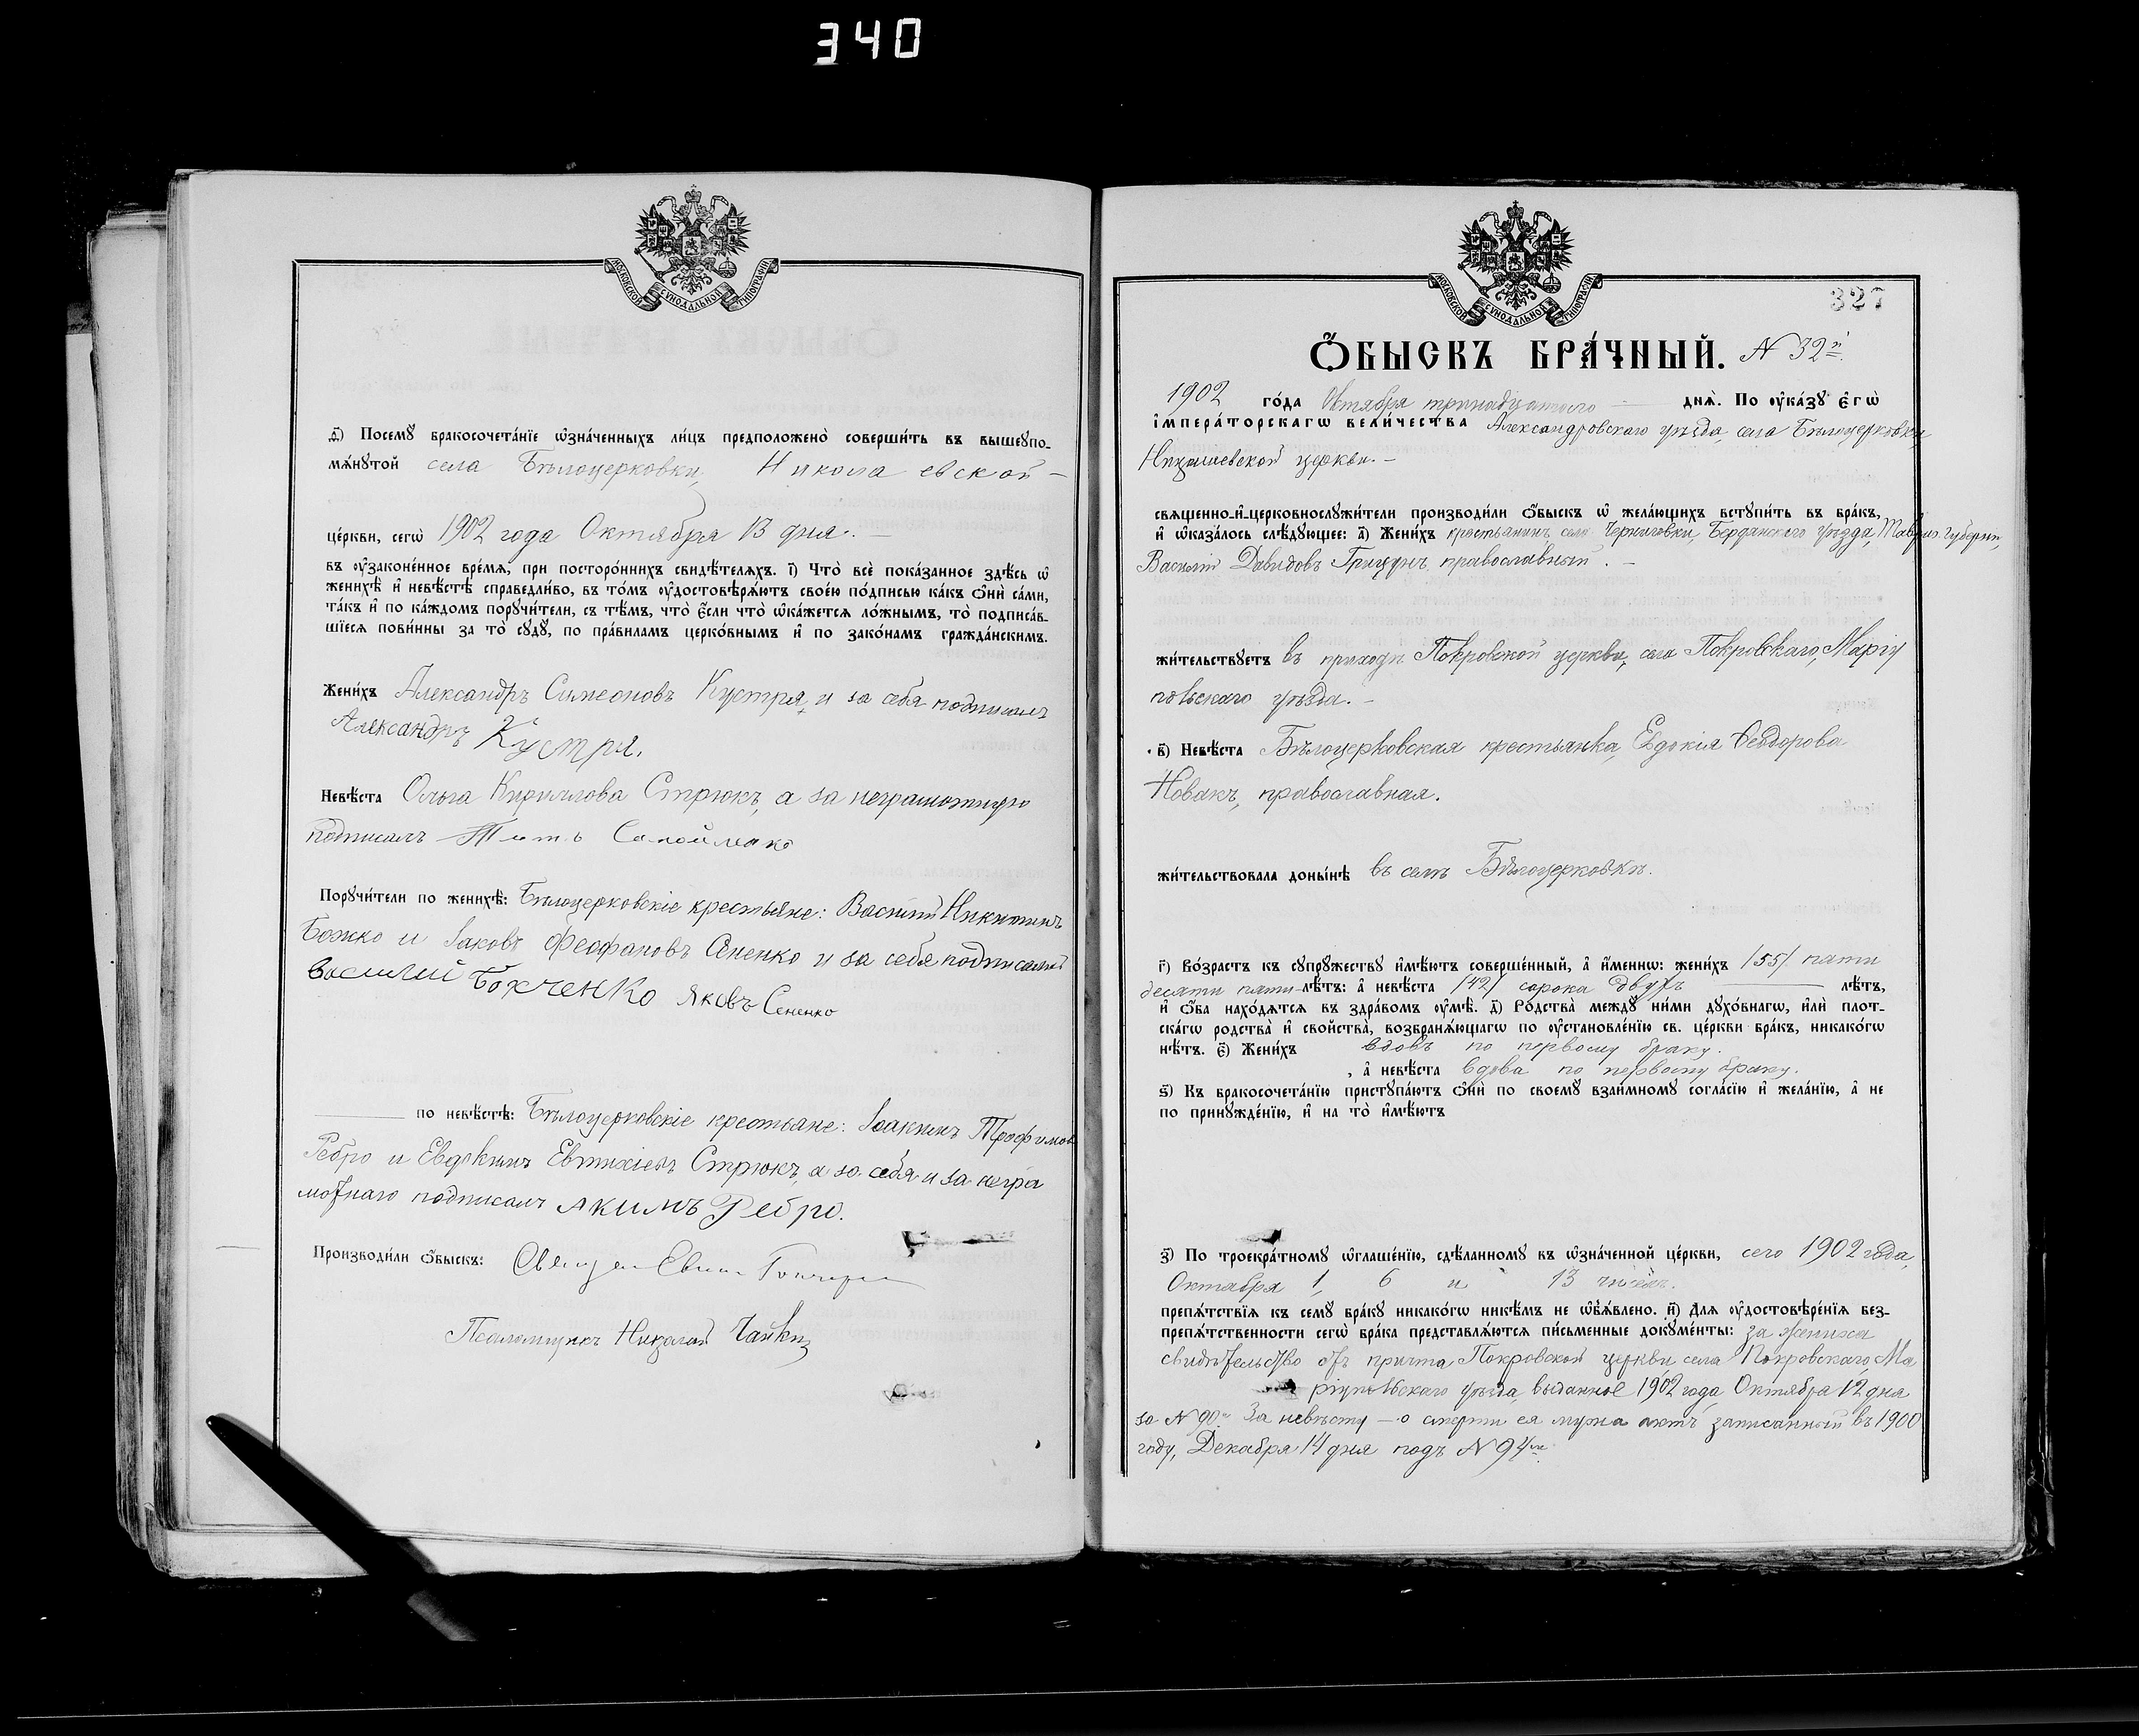 340
МОСКОВСКОЙ СѴНОДАЛЬНОЙ ТИПОГРАФІИ
ѳ҃) Посемꙋ бракосочета́нїе ѡ҆зна́ченныхъ ли́цъ предположено̀ соверши́ть въ вышеꙋпо-
мѧ́нꙋтой села Бѣлоцерковки, Николаевской —
це́ркви, сегѡ̀ 1902 года Октября 13 дня. —
въ ᲂу҆зако́ненное вре́мѧ, при посторо́ннихъ свидѣ́телѧхъ. і҃) Что̀ всѐ пока́занное здѣ́сь ѡ҆
женихѣ̀ и҆ невѣ́стѣ справедли́во, въ то́мъ ᲂу҆достовѣрѧ́ютъ свое́ю по́дписью ка́къ ѻ҆нѝ са́ми,
та́къ и҆ по ка́ждомъ порꙋчи́тели, съ тѣ́мъ, что̀ є҆́сли что̀ ѡ҆ка́жется ло́жнымъ, то̀ подписа́в-
шїесѧ пови́нны за то̀ сꙋдꙋ̀, по пра́виламъ церко́внымъ и҆ по зако́намъ гражда́нскимъ.
Жени́хъ Александръ Симеоновъ Кустря, и за себя подписалъ
Александръ Кустря.
Невѣ́ста Ольга Кириллова Стрюкъ, а за неграмотную
подписалъ Титъ
Порꙋчи́тели по женихѣ̀: Бѣлоцерковскіе крестьяне: Василій Никитинъ
Божко и Іаковъ Феофановъ Сененко и за себя подписались
Василий Божченко Яковъ Сененко
по невѣ́стѣ: Бѣлоцерковскіе крестьяне: Іоакимъ Трофимовъ
Ребро и Евдокимъ Евтихіевъ Стрюкъ, а за себя и за негра
мотнаго подписалъ Акимъ Ребро.
Производи́ли ѻ҆́быскъ: Священ
Псаломщикъ Николай
МОСКОВСКОЙ СѴНОДАЛЬНОЙ ТИПОГРАФІИ
327
Ѻ҆́БЫСКЪ БРА́ЧНЫЙ. N 32й
1902 го́да Октября тринадцатаго — днѧ̀. По ᲂу҆ка́зꙋ є҆гѡ̀
і҆мпера́торскагѡ вели́чества Александровскаго уѣзда, села Бѣлоцерковки,
Николаевской церкви. —
свѧще́нно-и҆-церковнослꙋжи́тели производи́ли ѻ҆́быскъ ѡ҆ жела́ющихъ встꙋпи́ть въ бра́къ,
и҆ ѡ҆каза́лось слѣ́дꙋющее: а҃) Жени́хъ крестьянинъ села Черниговки, Бердянскаго уѣзда, Таврич. губерніи,
Василій Давидовъ Грицунъ, православный. —
жи́тельствꙋетъ въ приходѣ Покровской церкви, села Покровскаго, Маріу
польскаго уѣзда. —
в҃) Невѣ́ста Бѣлоцерковская крестьянка, Евдокія Ѳеодорова
Новакъ, православная.
жи́тельствовала доны́нѣ въ селѣ Бѣлоцерковкѣ.
г҃) Во́зрастъ къ сꙋпрꙋ́жествꙋ и҆мѣ́ютъ соверше́нный, а҆ и҆́меннѡ: жени́хъ /55/ пяти
десяти пяти лѣ́тъ: а҆ невѣ́ста /42/ сорока двухъ — лѣ́тъ,
и҆ ѻ҆́ба нахо́дѧтсѧ въ здра́вомъ ᲂу҆мѣ̀. д҃) Ро́дства междꙋ̀ ни́ми дꙋхо́внагѡ, и҆лѝ плот-
ска́гѡ родства̀ и҆ свойства̀, возбранѧ́ющагѡ по ᲂу҆становле́нїю св. це́ркви бра́къ, никако́гѡ
нѣ́тъ. є҃) Жени́хъ вдовъ по первому браку.
, а҆ невѣ́ста вдова по первому браку.
ѕ҃) Къ бракосочета́нїю пристꙋпа́ютъ ѻ҆нѝ по своемꙋ̀ взаи́мномꙋ согла́сїю и҆ жела́нїю, а҆ не
по принꙋжде́нїю, и҆ на то̀ и҆мѣ́ютъ
з҃) По троекра́тномꙋ ѡ҆глаше́нїю, сдѣ́ланномꙋ въ ѡ҆зна́ченной це́ркви, сего 1902 года,
Октября 1, 6 и 13 чиселъ.
препѧ́тствїѧ къ семꙋ̀ бра́кꙋ никако́гѡ никѣ́мъ не ѡ҆б̾ѧ́влено. и҃) Для ᲂу҆достовѣре́нїѧ без-
препѧ́тственности сегѡ̀ бра́ка представлѧ́ютсѧ пи́сьменные докꙋме́нты: за жениха
свидѣтельство отъ причта Покровской церкви, села Покровскаго, Ма
ріупольскаго уѣзда, выданное 1902 года, Октября 12 дня
за N 90. За невѣсту — о смерти ея мужа актъ записанный въ 1900
году, Декабря 14 дня подъ N 94мъ